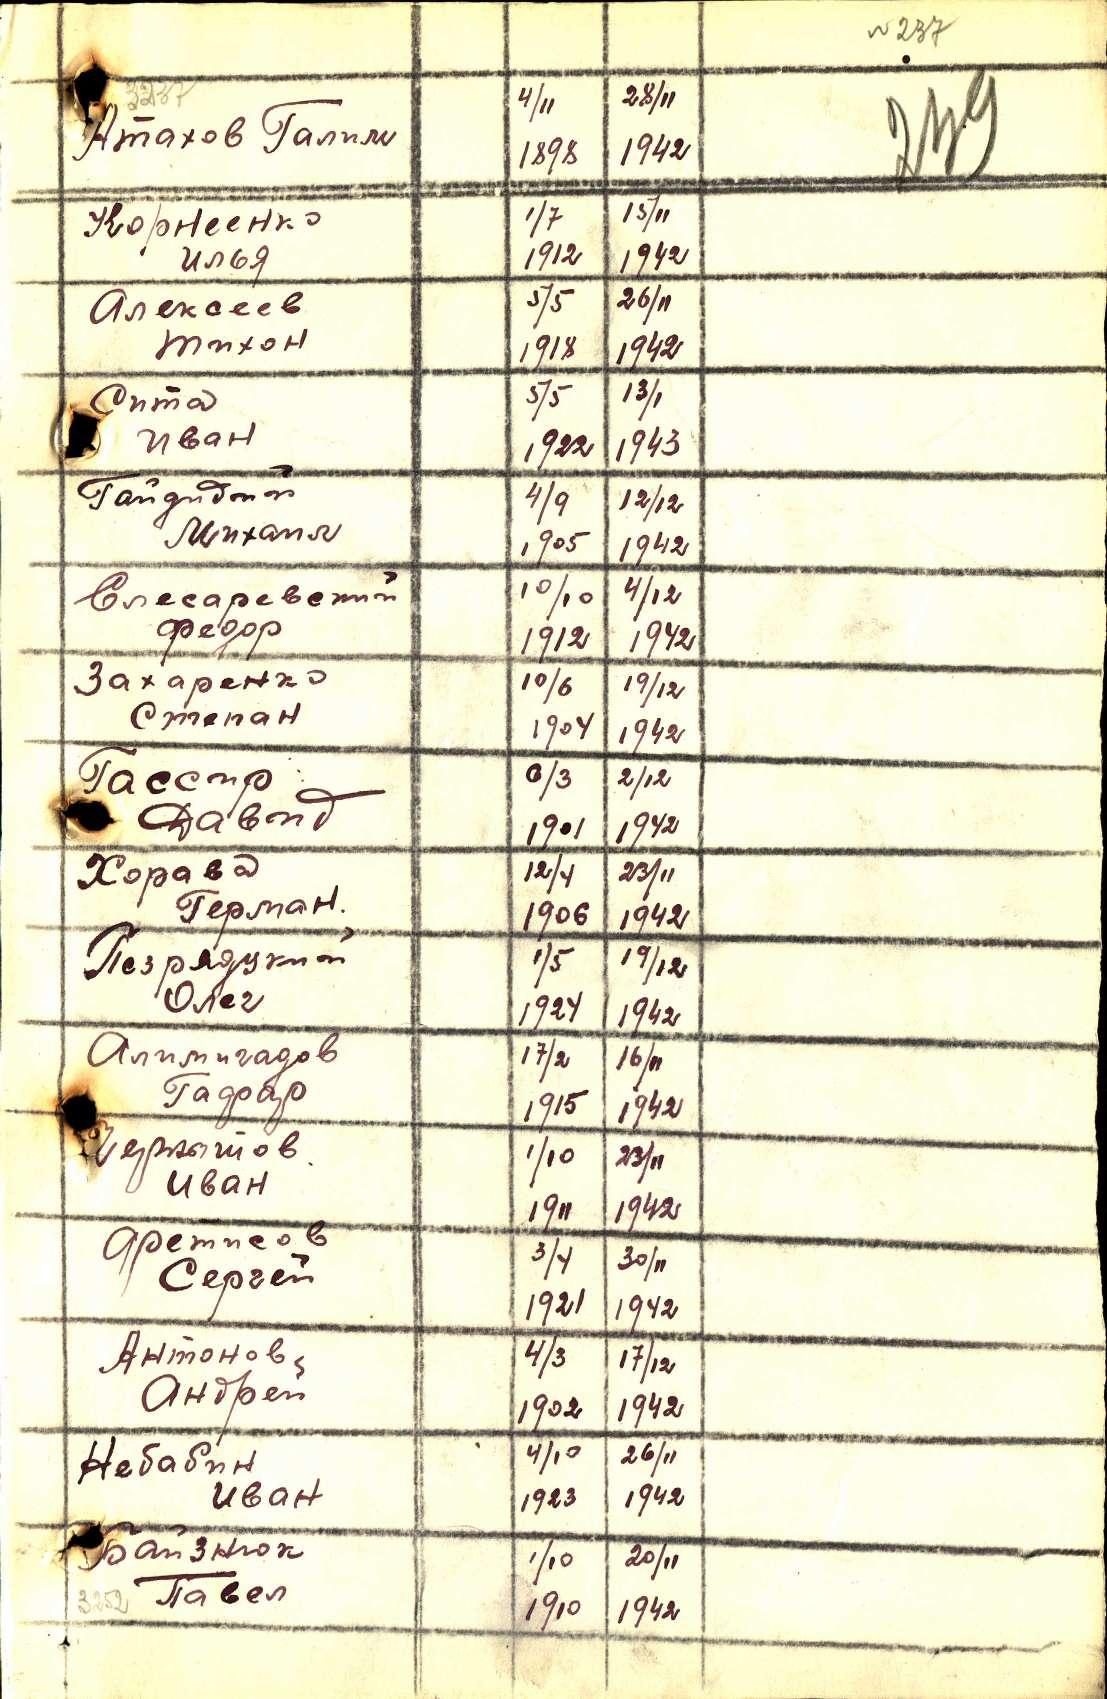 №237
3237
4/11 28/11
249
Атахов Галим 1898 1942
Корнеенко 1/7 15/11
Илья 1912 1942
Алексеев 5/5 26/11
Тихон 1918 1942
Сита 5/5 13/1
Иван 1922 1943
4/9 12/12
Михаил 1905 1942
Слесаревский 10/10 4/12
Федор 1912 1942
Захаренко 10/6 19/12
Степан 1904 1942
Гассир 6/3 2/12
Давид 1901 1942
Хорава 12/4 23/11
Герман. 1906 1942
1/5 19/12
Олег 1924 1942
17/2 16/11
1915 1942
1/10 23/11
Иван 1911 1942
Аретисов 3/4 30/11
Сергей 1921 1942
Антонов 4/3 17/12
Андрей 1902 1942
Небабин 4/10 26/11
Иван 1923 1942
Байзнюк 1/10 20/11
3252 Павел 1910 1942